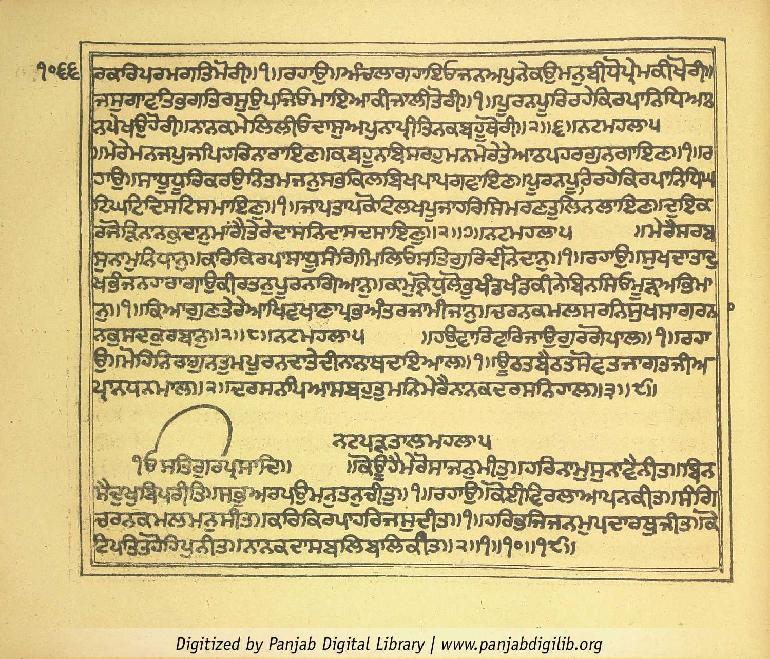 ੧੦੬੬ ਰਕਰਿਪਰਮਗਤਿਮੋਰੀ॥੧॥ਰਹਾਉ॥ਅੰਚਲਾਗਹਾਇਓਜਨਅਪੁਨੇਕਉਮਨੁਬੀਧੋਪ੍ਰੇਮਕੀਖੋਰੀ॥
ਜਸੁਗਾਵਤਭਗਤਿਰਸੁਉਪਜਿਓਮਾਇਆਕੀਜਾਲੀਤੋਰੀ॥੧॥ਪੂਰਨਪੂਰਿਰਹੇਕਿਰਪਾਨਿਧਿਆਨ
ਨਪੇਖਉਹੋਰੀ॥ਨਾਨਕਮੇਲਿਲੀਓਦਾਸੁਅਪੁਨਾਪ੍ਰੀਤਿਨਕਬਹੂਥੋਰੀ॥੨॥੬॥ਨਟਮਹਲਾ੫
॥ਮੇਰੇਮਨਜਪੁਜਪਿਹਰਿਨਾਰਾਇਣ॥ਕਬਹੂਨਬਿਸਰਹੁਮਨਮੇਰੇਤੇਆਠਪਹਰਗੁਨਗਾਇਣ॥੧॥ਰ
ਹਾਉ॥ਸਾਧੂਧੂਰਿਕਰਉਨਿਤਮਜਨੁਸਭਕਿਲਬਿਖਪਾਪਗਵਾਇਣ॥ਪੂਰਨਪੂਰਿਰਹੇਕਿਰਪਾਨਿਧਿਘ
ਟਿਘਟਿਦਿਸਟਿਸਮਾਇਣੁ॥੧॥ਜਾਪਤਾਪਕੋਟਿਲਖਪੂਜਾਹਰਿਸਿਮਰਣਤੁਲਿਨਲਾਇਣ॥ਦੁਇਕ
ਰਜੋੜਿਨਾਨਕੁਦਾਨੁਮਾਂਗੈਤੇਰੇਦਾਸਨਿਦਾਸਦਸਾਇਣੁ॥੨॥੭॥ਨਟਮਹਲਾ੫ ॥ਮੇਰੈਸਰਬ
ਸੁਨਾਮੁਨਿਧਾਨੁ॥ਕਰਿਕਿਰਪਾਸਾਧੂਸੰਗਿਮਿਲਿਓਸਤਿਗੁਰਿਦੀਨੋਦਾਨੁ॥੧॥ਰਹਾਉ॥ਸੁਖਦਾਤਾਦੁ
ਖਭੰਜਨਹਾਰਾਗਾਉਕੀਰਤਨੁਪੂਰਨਗਿਆਨੁ॥ਕਾਮੁਕ੍ਰੋਧੁਲੋਭੁਖੰਡਖੰਡਕੀਨੇਬਿਨਸਿਓਮੂੜਅਭਿਮਾ
ਨੁ॥੧॥ਕਿਆਗੁਣਤੇਰੇਆਖਿਵਖਾਣਾਪ੍ਰਭਅੰਤਰਜਾਮੀਜਾਨੁ॥ਚਰਨਕਮਲਸਰਨਿਸੁਖਸਾਗਰਨਾ
ਨਕੁਸਦਕੁਰਬਾਨੁ॥੨॥੮॥ਨਟਮਹਲਾ੫ ॥ਹਉਵਾਰਿਵਾਰਿਜਾਉਗੁਰਗੋਪਾਲ॥੧॥ਰਹਾ
ਉ॥ਮੋਹਿਨਿਰਗੁਨਤੁਮਪੂਰਨਦਾਤੇਦੀਨਾਨਾਥਦਇਆਲ॥੧॥ਊਠਤਬੈਠਤਸੋਵਤਜਾਗਤਜੀਅ
ਪ੍ਰਾਨਧਨਮਾਲ॥੨॥ਦਰਸਨਪਿਆਸਬਹੁਤੁਮਨਿਮੇਰੈਨਾਨਕਦਰਸਨਿਹਾਲ॥੩॥੯॥
ਨਟਪੜਤਾਲਮਹਲਾ੫
ੴਸਤਿਗੁਰਪ੍ਰਸਾਦਿ॥ ॥ਕੋਊਹੈਮੇਰੋਸਾਜਨੁਮੀਤੁ॥ਹਰਿਨਾਮੁਸੁਨਾਵੈਨੀਤ॥ਬਿਨ
ਸੈਦੁਖੁਬਿਪਰੀਤਿ॥ਸਭੁਅਰਪਉਮਨੁਤਨੁਚੀਤੁ॥੧॥ਰਹਾਉ॥ਕੋਈਵਿਰਲਾਆਪਨਕੀਤ॥ਸੰਗਿ
ਚਰਨਕਮਲਮਨੁਸੀਤ॥ਕਰਿਕਿਰਪਾਹਰਿਜਸੁਦੀਤ॥੧॥ਹਰਿਭਜਿਜਨਮੁਪਦਾਰਥੁਜੀਤ॥ਕੋ
ਟਿਪਤਿਤਹੋਹਿਪੁਨੀਤ॥ਨਾਨਕਦਾਸਬਲਿਬਲਿਕੀਤ॥੨॥੧॥੧੦॥੧੯॥
Digitized by Panjab Digital Library | www.panjabdigilib.org